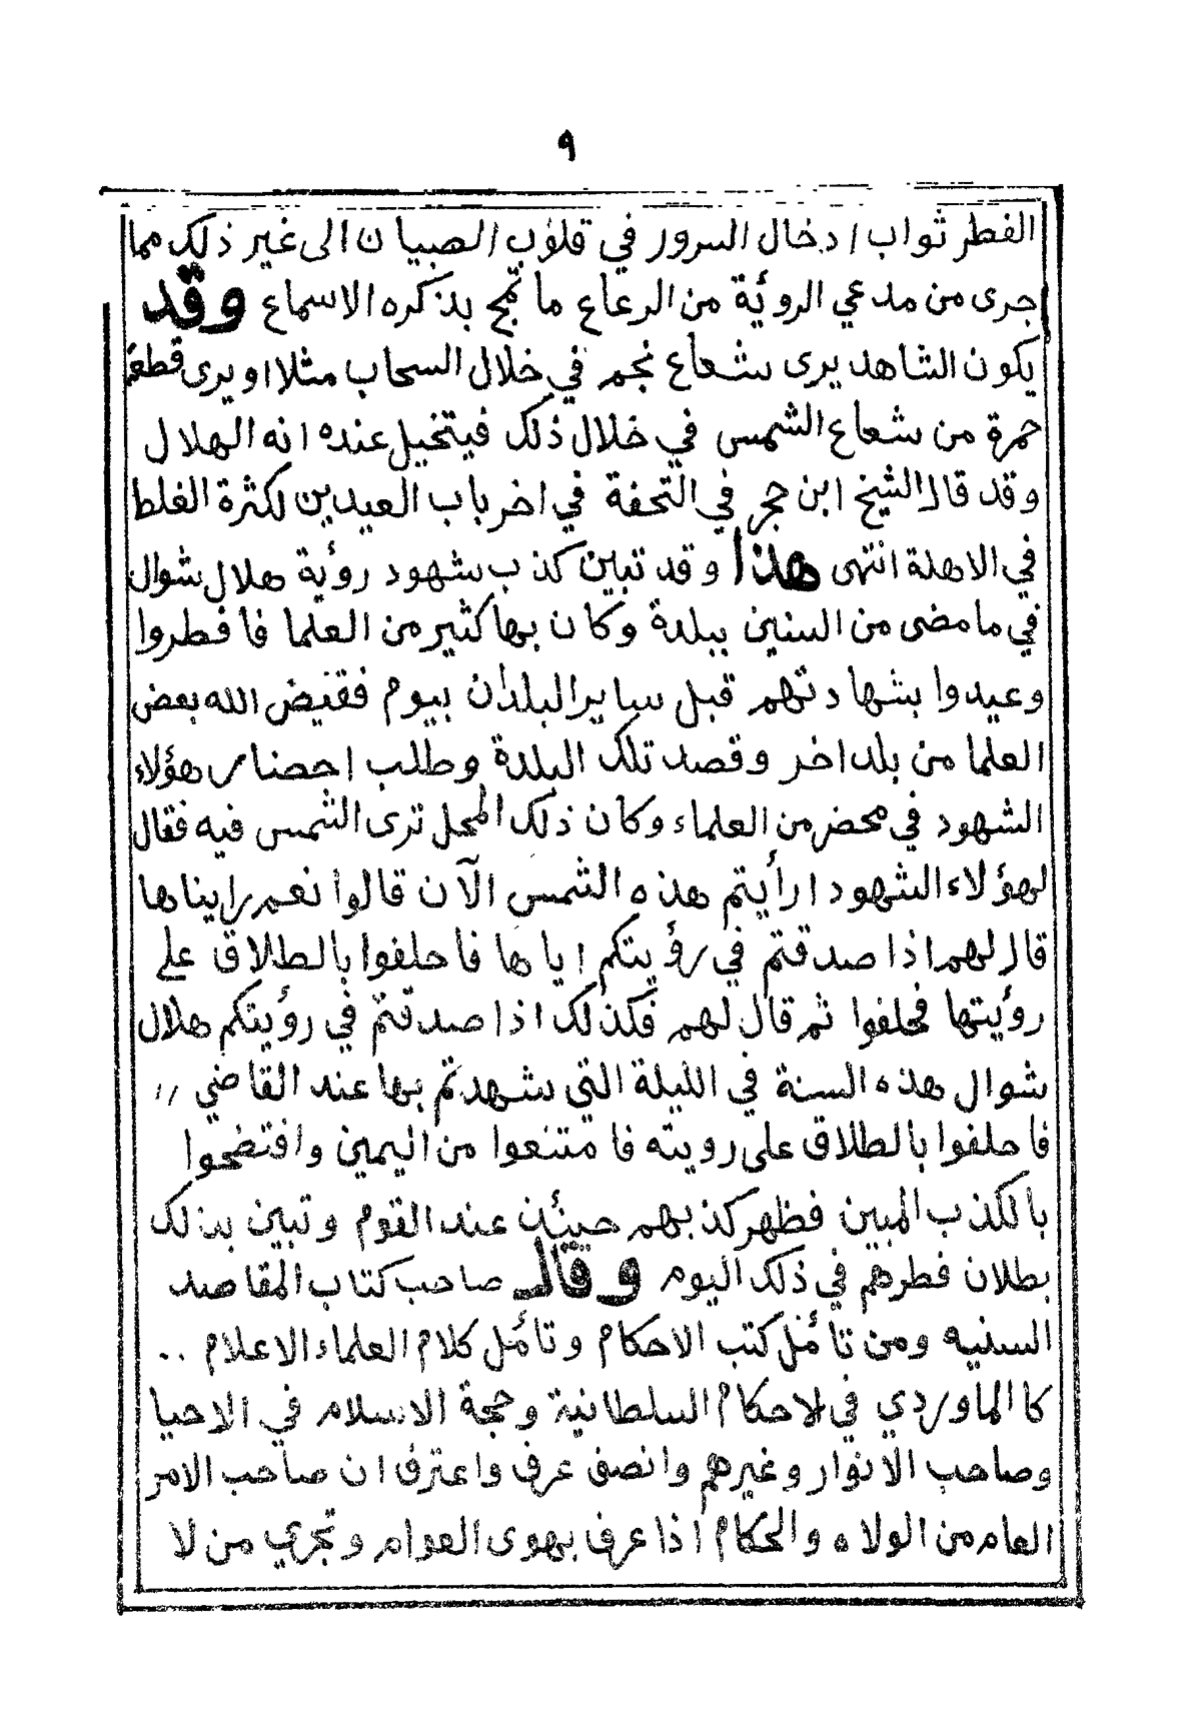 ٩
الفطر ثواب ادخال السرور في قلوب الصبيان الى غير ذلك مما
جرى من مدعي الروئية من الرعاع ما تمج بذكره الاسماع وقد
يكون الشاهد يرى شعاع نجم في خلال السحاب مثلا او يرى قطعة
حمرة من شعاع الشمس في خلال ذلك فيتخيل عنده انه الهلال
وقد قال الشيخ ابن حجر في التحفة في اخر باب العيدين لكثرة الغلط
في الاهلة انتهى هذا وقد تبين كذب شهود رؤية هلال شوال
في ما مضى من السنين ببلدة وكان بها كثير من العلما فافطروا
وعيدوا بشهادتهم قبل ساير البلدان بيوم فقيض الله بعض
العلما من بلد اخر وقصد تلك البلدة وطلب احضار هؤلاء
الشهود في محضر من العلماء وكان ذلك المحل ترى الشمس فيه فقال
لهؤلاء الشهود ارأيتم هذه الشمس الآن قالوا نعم رايناها
قال لهم اذا صدقتم في رؤيتكم اياها فاحلفوا بالطلاق على
رؤيتها فحلفوا ثم قال لهم فكذلك اذا صدقتم في رؤيتكم هلال
شوال هذه السنة في الليلة التي شهدتم بها عند القاضي //
فاحلفوا بالطلاق على رويته فامتنعوا من اليمين وافتضحوا
بالكذب المبين فظهر كذبهم حينئذ عند القوم وتبين بذلك
بطلان فطرهم في ذلك اليوم وقال صاحب كتاب المقاصد
السنيه ومن تأمل كتب الاحكام وتأمل كلام العلماء الاعلام ..
كالماوردي في الاحكام السلطانية وحجة الاسلام في الاحيا
وصاحب الانوار وغيرهم وانصف عرف واعترف ان صاحب الامر
العام من الولاه والحكام اذا عرف بهوى العوام وتجري من لا